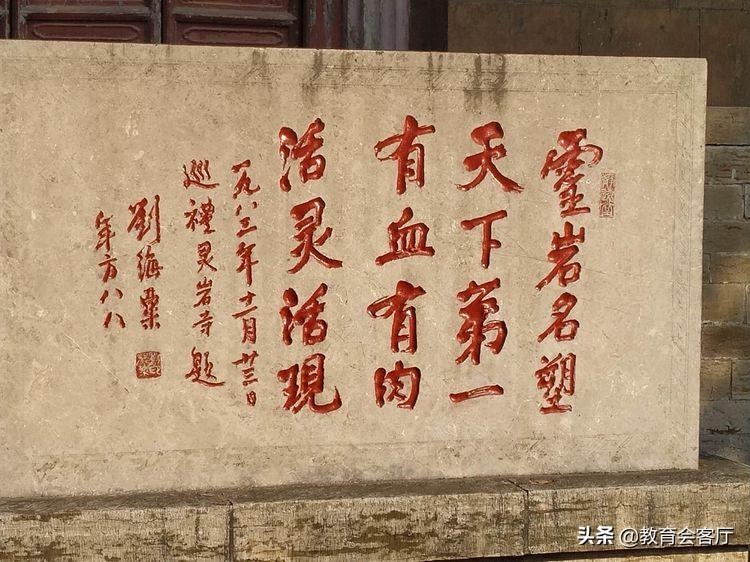 靈岩名塑
天下第一
有血有肉
活灵活現
一九八三年十一月廿三日
巡禮灵岩寺题
劉海粟
年方八八
头条 @教育会客厅